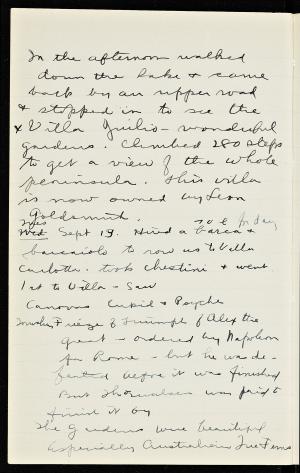 In the afternoon walked
down the lake & came
back by an upper road
& stopped in to see the
x Villa Giulio - wonderful
gardens. Climbed 280 steps
to get a view of the whole
peninsula. This villa
is now owned by Leon
Goldsmith.
Tues 20 £ for day
Wed Sept 19. Hired a barca &
barcaiolo to row us to Villa
Carlotta. took chestini & went
1st to Villa - Saw
Canovas Cupid & Psyche
Frieze of triumph of Alex the
great - ordered by Napoleon
for Rome - but he was de-
feated before it was finished
But Thorwalsen was paid to
finish it by
The gardens were beautiful
especially Australian Tree Ferns